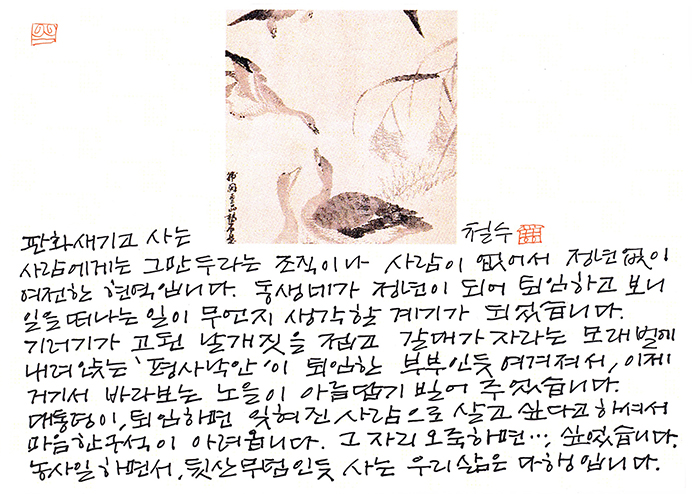 판화새기고 사는
철수
사람에게는 그만두라는 조직이나 사람이 없어서 정년없이
여전한 현역입니다. 동생네가 정년이 되어 퇴임하고 보니
일을 떠나는 일이 무언지 생각할 계기가 되었습니다.
기러기가 고된 날개짓을 접고 갈대가 자라는 모래벌에
내려앉는 '평사낙안'이 퇴임한 부부인듯 여겨져서, 이제
거기서 바라보는 노을이 아름답기 빌어 주었습니다.
대통령이, 퇴임하면 잊혀진 사람으로 살고 싶다고 하셔서
마음 한구석이 아려옵니다. 그 자리 오죽하면…, 싶었습니다.
농사일 하면서, 뒷산 무덤인듯 사는 우리 삶은 다행입니다.